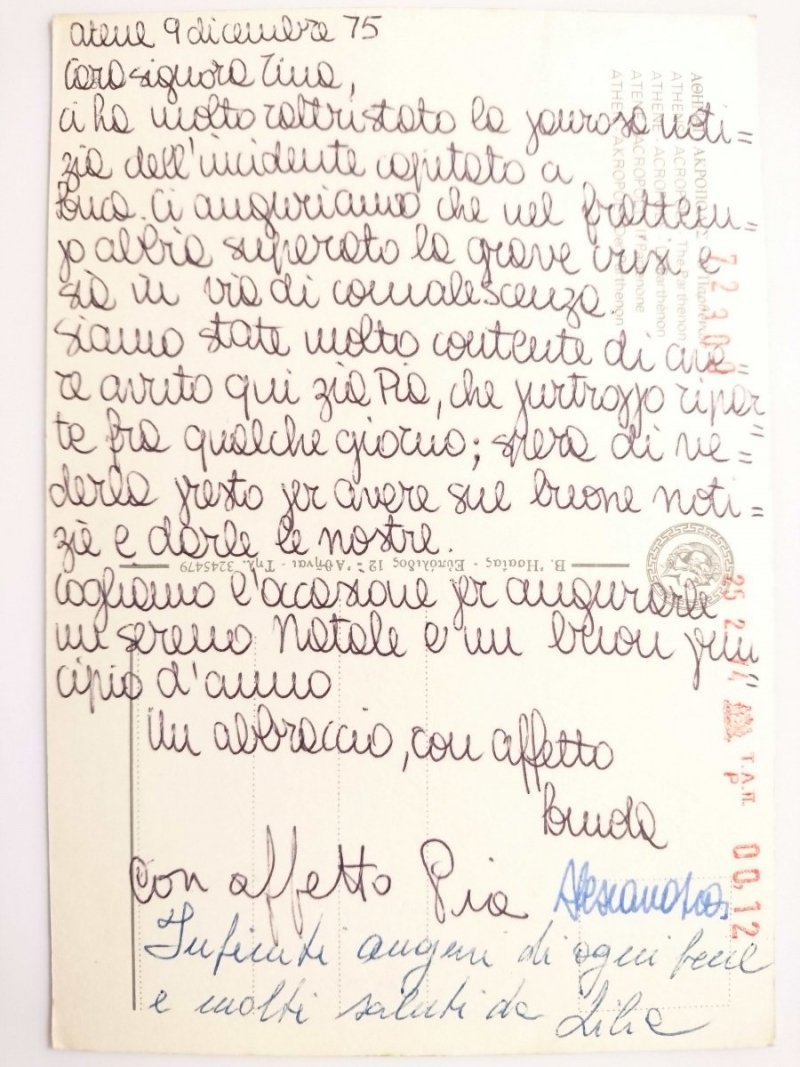 atene 9 dicembre 75
Cara signora Tina,
ci ha molto rattristato la paurosa noti=
zia dell'incidente capitato a
Luca. Ci auguriamo che nel frattem=
po abbia superato la grave crisi e
sia in via di convalescenza.
Siamo state molto contente di ave=
re avuto qui zia Pia, che purtroppo ripar=
te fra qualche giorno; spera di ve=
derla presto per avere sue buone noti=
zie e darle le nostre.
Cogliamo l'occasione per augurarle
un sereno Natale e un buon prin=
cipio d'anno
Un abbraccio, con affetto
con affetto Pia
Alessandra
Infiniti auguri di ogni bene
e molti saluti da Lilia
ΑΚΡΟΠΟΛΙΣ
ATHENS ACROPOLIS The Parthenon
Β. Ἡσαΐας - Εὐπόλιδος 12 - Ἀθῆναι - Τηλ. 3245479
Τ.Α.Π.
00,12